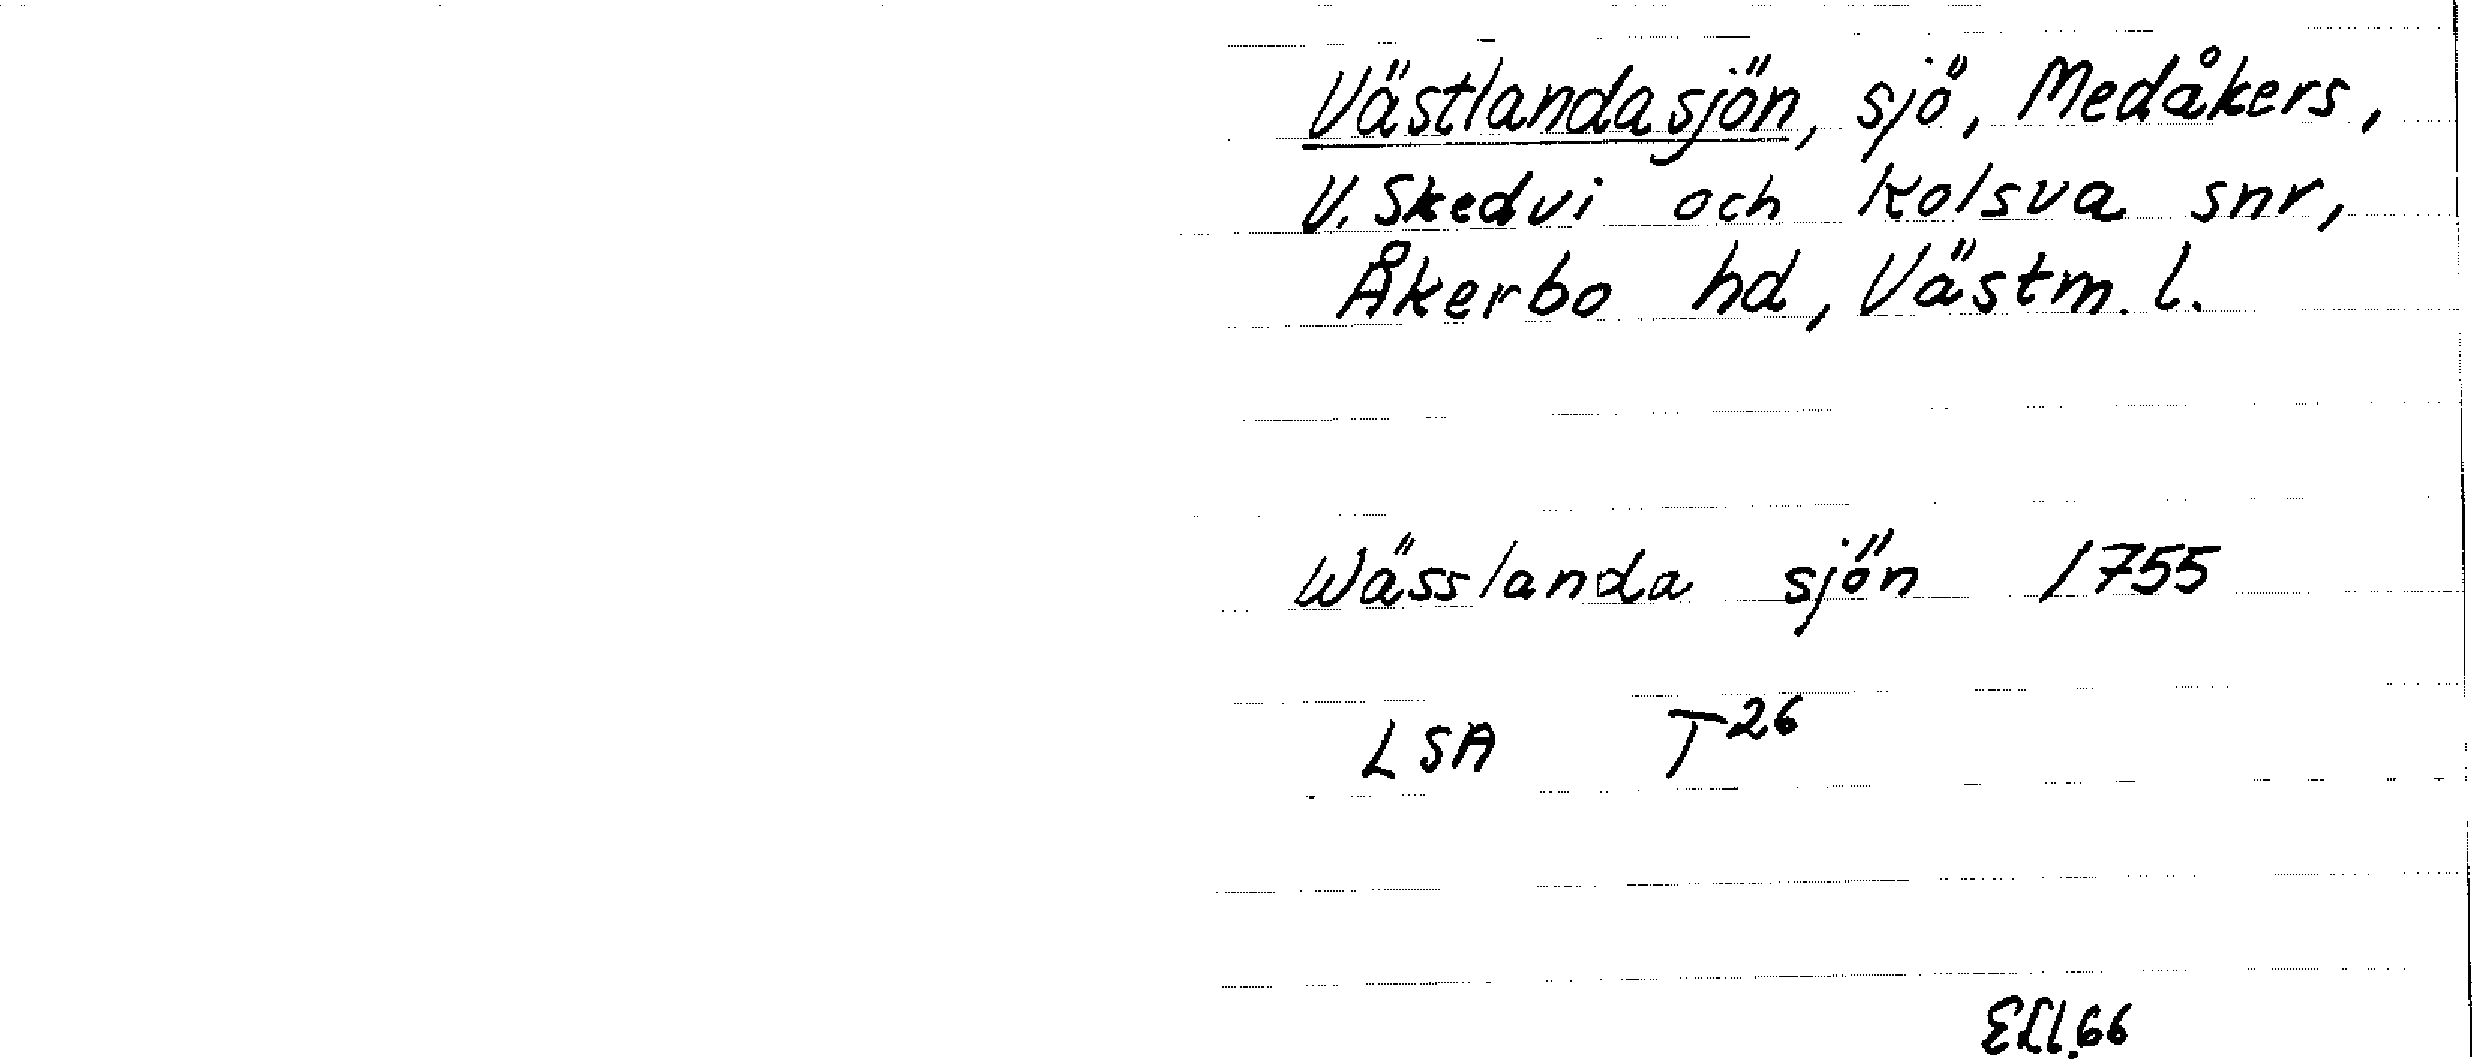 Västlandasjön, sjö, Medåkers,
V. Skedvi och Kolsva snr,
Åkerbo hd, Västm. l.
Wässlanda sjön 1755
LSA T26